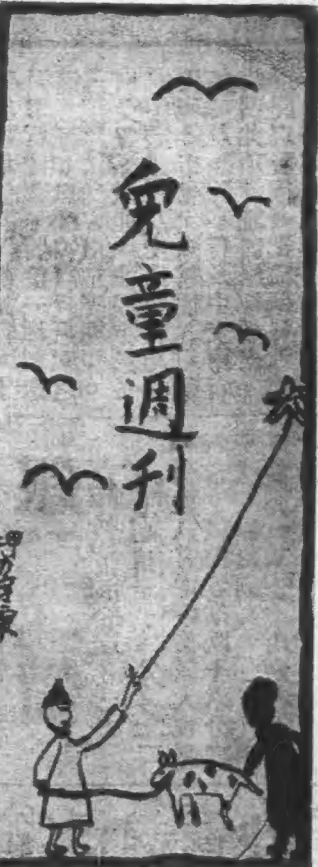 兒童週刊